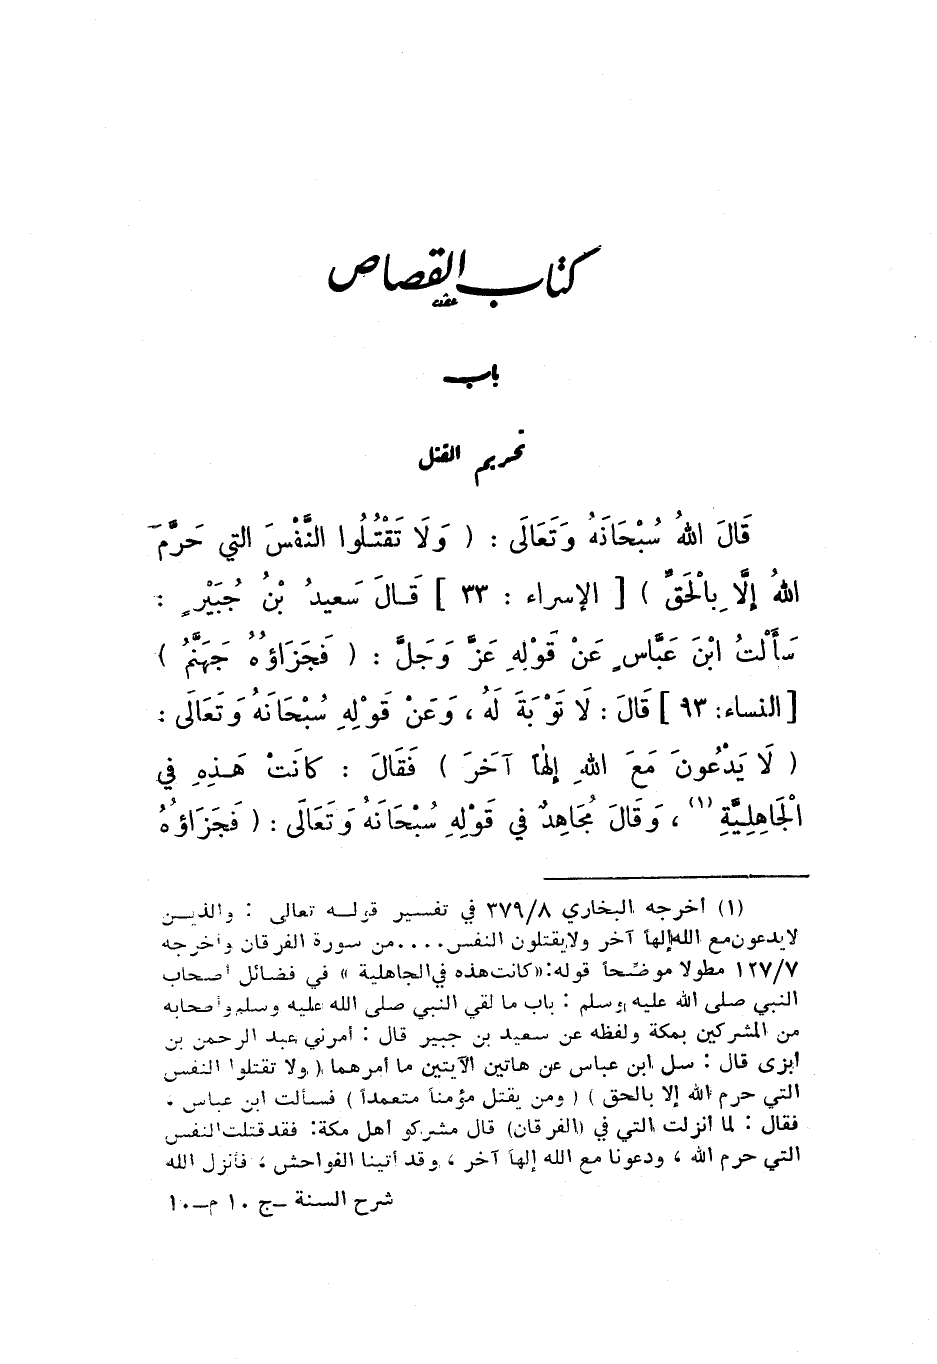 كتاب القصاص
باب
تحريم القتل
قَالَ اللهُ سُبْحَانَهُ وَتَعَالَى : ( وَلَا تَقْتُلُوا النَّفْسَ التي حَرَّمَ
اللهُ إِلَّا بِالْحَقِّ ) [ الإسراء : ٣٣ ] قَـالَ سَعيدُ بْنُ جُبَيْرٍ :
سَأَلْتُ ابْنَ عَبَّاسٍ عَنْ قَوْلِهِ عَزَّ وَجَلَّ : ( فَجَزَاؤُهُ جَهَنَّمُ )
[النساء: ٩٣] قَالَ : لَا تَوْبَةَ لَهُ ، وَعَنْ قَوْلِهِ سُبْحَانَهُ وَتَعَالَى :
( لَا يَدْعُونَ مَعَ اللهِ إِلٰهاً آخَرَ ) فَقَالَ : كَانَتْ هَـذِهِ فِي
الْجَاهِلِيَّةِ (١) ، وَقَالَ مُجَاهِدٌ فِي قَوْلِهِ سُبْحَانَهُ وَتَعَالَى : ( فَجَزَاؤُهُ
(١) أخرجه البخاري ٣٧٩/٨ في تفسير قولـه تعالى : والذيـن
لا يدعون مع الله إلهاً آخر ولا يقتلون النفس .... من سورة الفرقان وأخرجه
١٢٧/٧ مطولا موضّحاً قوله : « كانت هذه في الجاهلية » في فضائل أصحاب
النبي صلى الله عليه وسلم : باب ما لقي النبي صلى الله عليه وسلم وأصحابه
من المشركين بمكة ولفظه عن سعيد بن جبير قال : أمرني عبد الرحمن بن
أبزى قال : سل ابن عباس عن هاتين الآيتين ما أمرهما ( ولا تقتلوا النفس
التي حرم الله إلا بالحق ) ( ومن يقتل مؤمناً متعمداً ) فسألت ابن عباس ،
فقال : لما أنزلت التي في (الفرقان) قال مشركو أهل مكة: فقد قتلت النفس
التي حرم الله ، ودعونا مع الله إلهاً آخر ، وقد أتينا الفواحش ، فأنزل الله
شرح السنة ـ ج ١٠ م ـ ١٠